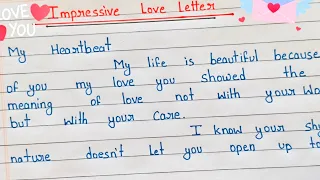 LOVE YOU
Impressive Love Letter
My Heartbeat
My life is beautiful because
of you my love you showed the
meaning of love not with your Wo
but with your care.
I know your shy
nature doesn't let you open up to